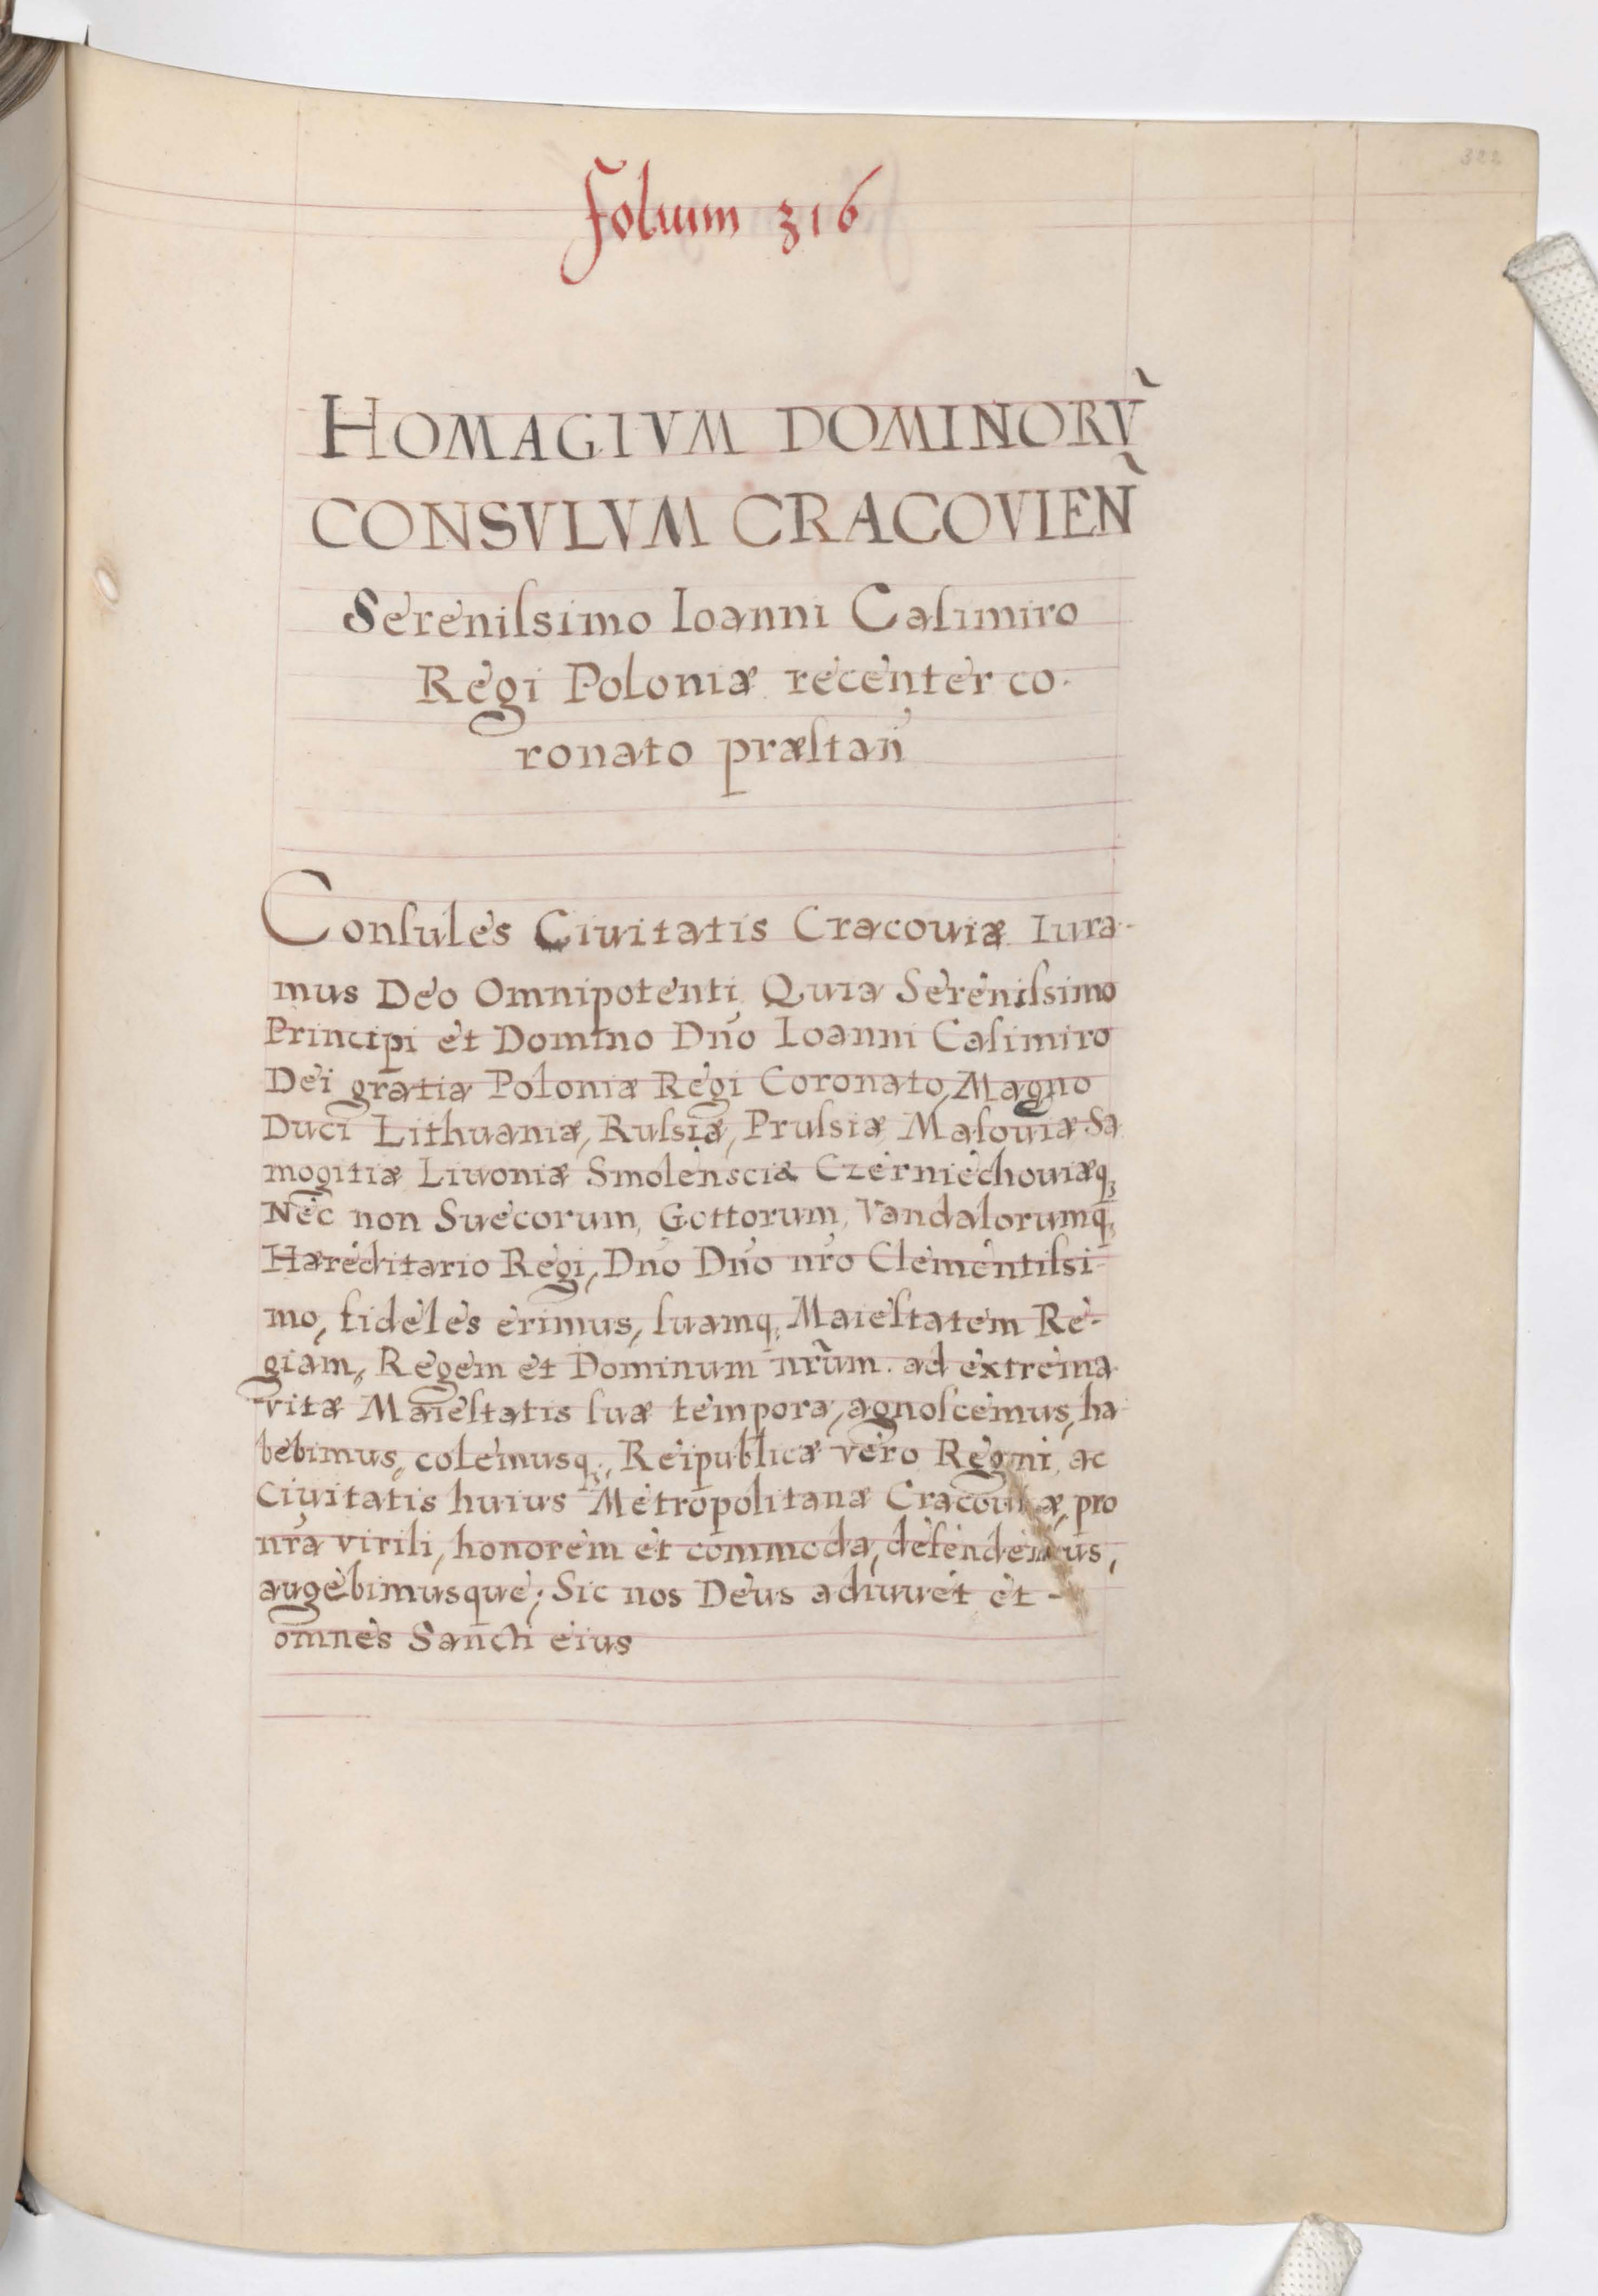 322
Folium 316
HOMAGIVM DOMINORṼ
CONSVLVM CRACOVIEÑ
Sereniſsimo Ioanni Caſimiro
Regi Poloniæ recenter co-
ronato præſtañ
Conſules Ciuitatis Cracouiæ Iura-
mus Deo Omnipotenti Quia Sereniſsimo
Principi et Domino Dño Ioanni Caſimiro
Dei gratia Poloniæ Regi Coronato, Magno
Duci Lithuaniæ, Ruſsiæ, Pruſsiæ Maſouiæ Sa
mogitiæ Liuoniæ Smolensciæ Czerniechouiæq;
Nec non Suecorum, Gottorum, Vandalorumq;
Hæreditario Regi, Dño Dño nr̃o Clementiſsi-
mo, fideles erimus, ſuamq; Maieſtatem Re-
giam, Regem et Dominum nr̃um. ad extrema
vitæ Maieſtatis ſuæ tempora, agnoſcemus, ha
bebimus, colemusq;, Reipublicæ vero Regni, ac
Ciuitatis huius Metropolitanæ Cracouiæ, pro
nr̃a virili, honorem et commoda, defendemus,
augebimusque; Sic nos Deus adiuuet et -
omnes Sancti eius